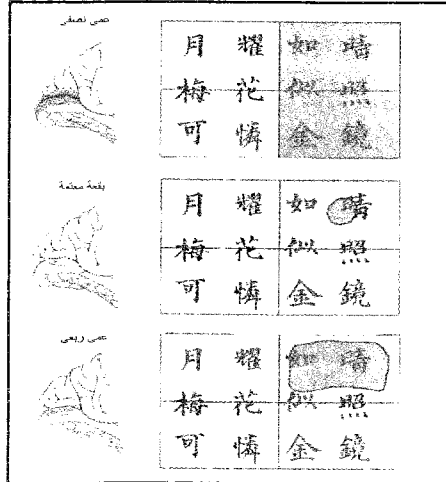 عمى نصفى
月 耀 如 晴
梅 花 似 照
可 憐 金 鏡
بقعة معتمة
月 耀 如 晴
梅 花 似 照
可 憐 金 鏡
عمى ربعى
月 耀 如 晴
梅 花 似 照
可 憐 金 鏡